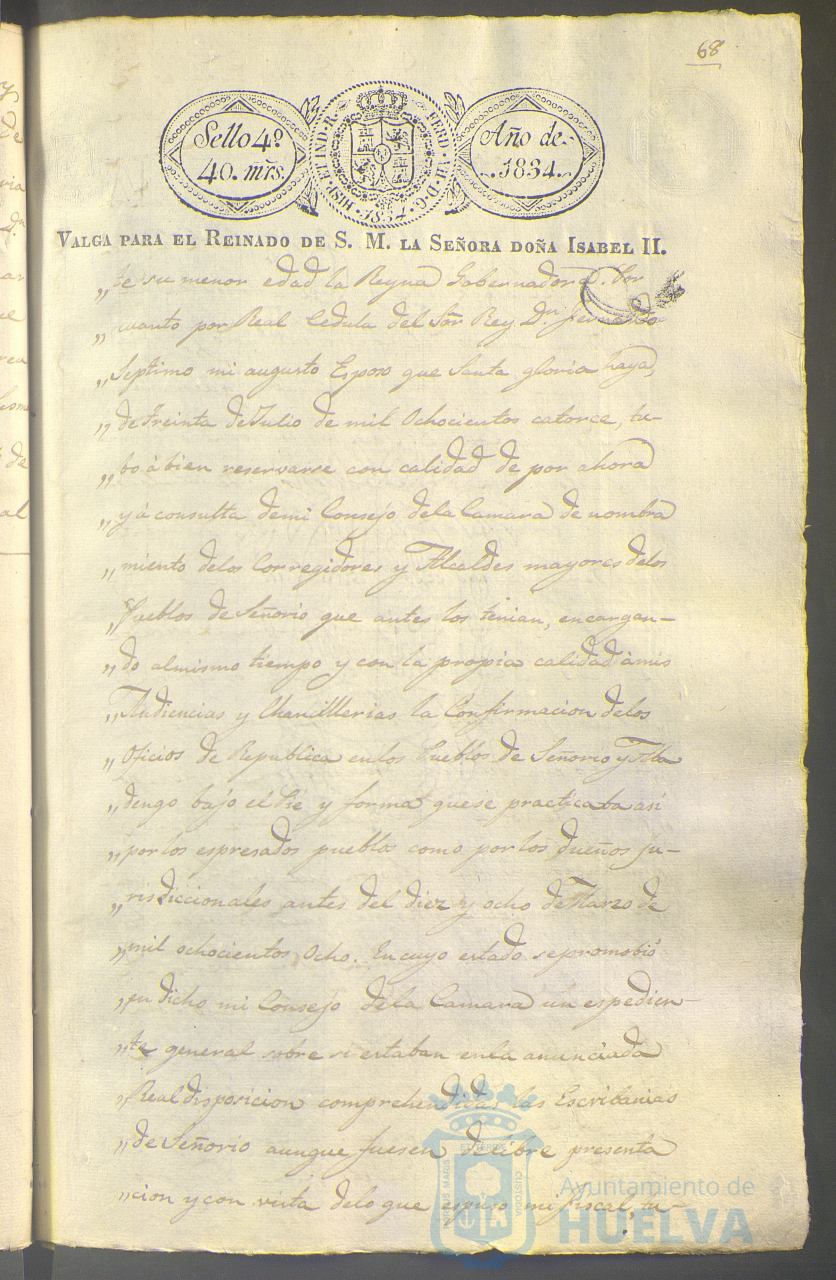 68
Sello 4º
40. mrs.
HISP. ET IND. R. FERD. VII. D. G. 1834.
Año de
1834.
VALGA PARA EL REINADO DE S. M. LA SEÑORA DOÑA ISABEL II.
„te su menor edad la Reyna Gobernadora. Por
„cuanto por Real Cedula del Sõr Rey Dn Fernando
„Septimo mi augusto Esposo que Santa gloria haya,
„de treinta de Julio de mil Ochocientos catorce, tu-
„bo á bien reservarse con calidad de por ahora
„y á consulta demi Consejo dela Camara de nombra
„miento delos Corregidores y Alcaldes mayores delos
„Pueblos de Señorio que antes los tenian, encargan-
„do almismo tiempo y con la propia calidad ámis
„Audiencias y Chancillerias la Confirmacion delos
„Oficios de Republica enlos Pueblos de Señorio y Aba
„dengo bajo el Pie y forma que se practicaba asi
„por los espresados pueblos como por los dueños ju-
„risdiccionales antes del diez y ocho de Marzo de
„mil ochocientos Ocho. En cuyo estado sepromobió
„en dicho mi Consejo dela Camara un espedien-
„te general sobre si estaban enla anunciada
„Real disposicion comprehendidas las Escribanias
„de Señorio aunque fuesen de libre presenta
„cion y con vista delo que espuso mi fiscal, tu-
Ayuntamiento de
HUELVA